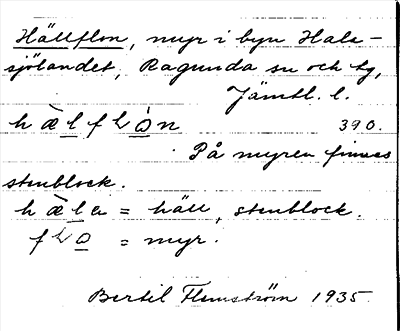 Hällflon, myr i byn Hals-
sjölandet, Ragunda sn och tg,
Jämtl. l.
hæ̀lflòn 390.
På myren finnes
stenblock.
hæ̀la = häll, stenblock.
flo = myr.
Bertil Flemström 1935